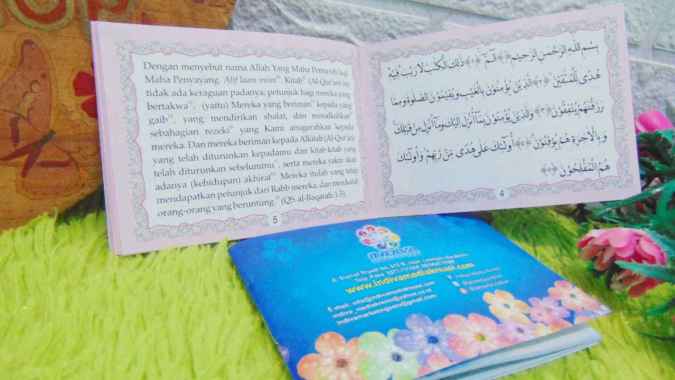 Dengan menyebut nama Allah Yang Maha Pemurah lagi
Maha Penyayang. Alif laam miim. Kitab (Al-Qur'an) ini
tidak ada keraguan padanya; petunjuk bagi mereka yang
bertakwa, (yaitu) Mereka yang beriman kepada yang
gaib, yang mendirikan shalat, dan menafkahkan
sebahagian rezeki yang Kami anugerahkan kepada
mereka. Dan mereka beriman kepada Alkitab (Al-Qur'an)
yang telah diturunkan kepadamu dan kitab-kitab yang
telah diturunkan sebelummu, serta mereka yakin akan
adanya (kehidupan) akhirat. Mereka itulah yang tetap
mendapatkan petunjuk dari Rabb mereka, dan merekalah
orang-orang yang beruntung. (QS. al-Baqarah: 1-5)
5
بِسْمِ اللَّهِ الرَّحْمَنِ الرَّحِيمِ ﴿١﴾ الٓمٓ ﴿١﴾ ذَلِكَ الْكِتَابُ لَا رَيْبَ فِيهِ
هُدًى لِلْمُتَّقِينَ ﴿٢﴾ الَّذِينَ يُؤْمِنُونَ بِالْغَيْبِ وَيُقِيمُونَ الصَّلَاةَ وَمِمَّا
رَزَقْنَاهُمْ يُنْفِقُونَ ﴿٣﴾ وَالَّذِينَ يُؤْمِنُونَ بِمَا أُنْزِلَ إِلَيْكَ وَمَا أُنْزِلَ مِنْ قَبْلِكَ
وَبِالْآخِرَةِ هُمْ يُوقِنُونَ ﴿٤﴾ أُولَئِكَ عَلَى هُدًى مِنْ رَبِّهِمْ وَأُولَئِكَ
هُمُ الْمُفْلِحُونَ ﴿٥﴾
4
www.indivamediakreasi.com